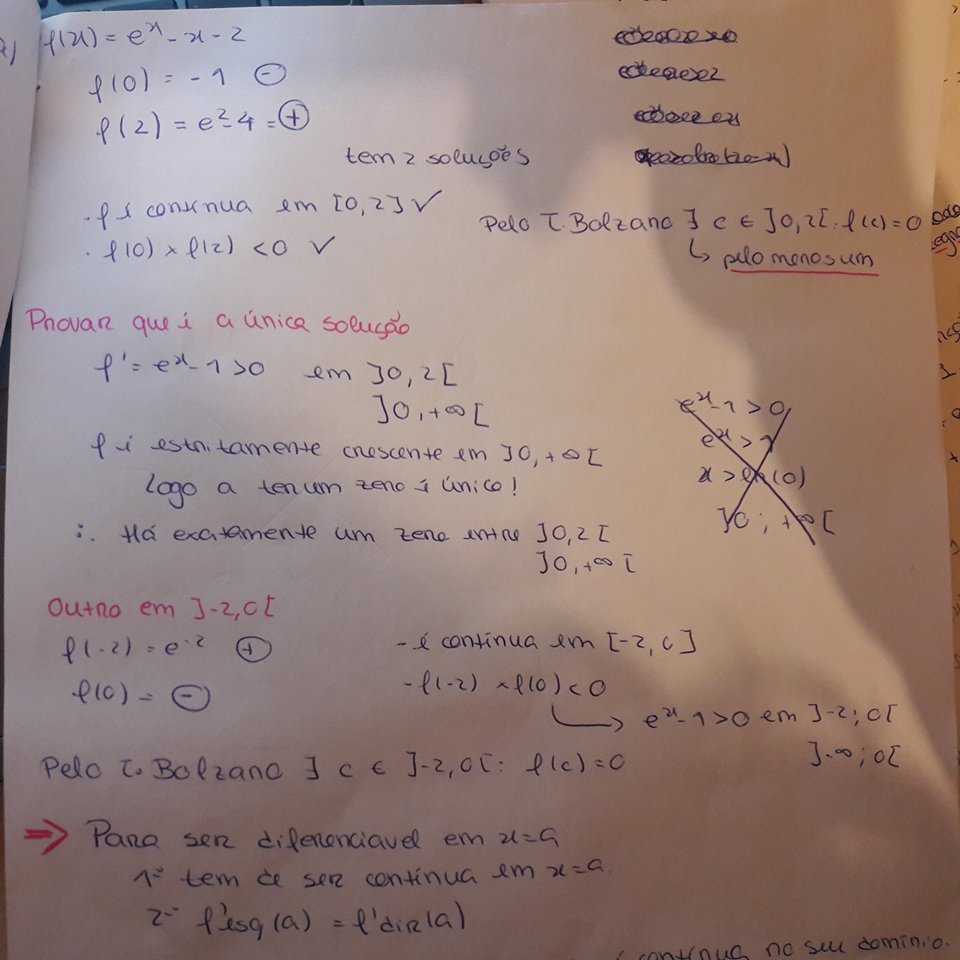 a) f(x) = e^x - x - 2
f(0) = - 1 ⊖
f(2) = e^2 - 4 = ⊕
tem 2 soluções
. f é contínua em [0,2] ✓
. f(0) × f(2) < 0 ✓
Pelo T. Bolzano ∃ c ∈ ]0,2[ : f(c) = 0
↳ pelo menos um
Provar que é a única solução
f' = e^x - 1 > 0 em ]0,2[
]0,+∞[
f é estritamente crescente em ]0,+∞[
Logo a ter um zero é único!
∴ Há exatamente um zero entre ]0,2[
]0,+∞[
e^x - 1 > 0
e^x > 1
x > ln(0)
]0 ; +∞[
Outro em ]-2,0[
f(-2) = e^-2 ⊕
f(0) = ⊖
- é contínua em [-2,0]
- f(-2) × f(0) < 0
→ e^x - 1 > 0 em ]-2;0[
]-∞;0[
Pelo T. Bolzano ∃ c ∈ ]-2,0[ : f(c) = 0
⇒ Para ser diferenciavel em x=a
1º tem de ser contínua em x=a.
2º f'esq(a) = f'dir(a)
é contínua no seu domínio.